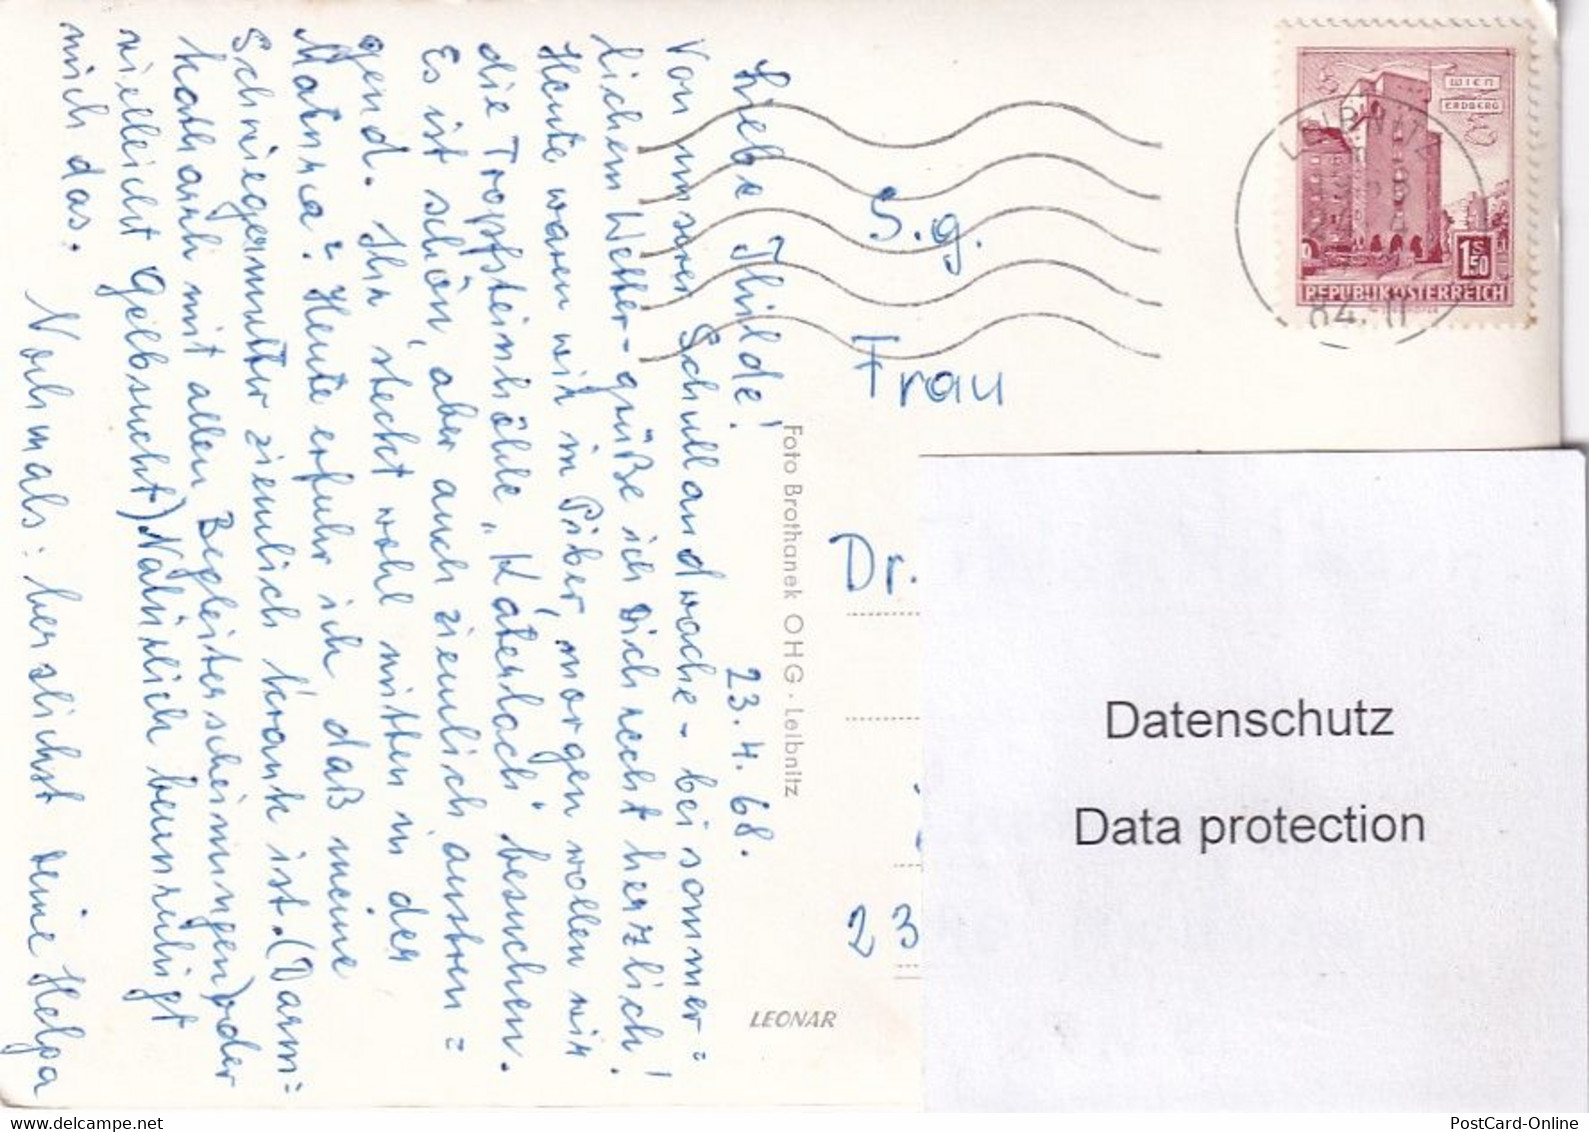 23.4.68.
Liebe Thilde!
Von unserer Schullandwoche - bei sommer=
lichem Wetter - grüße ich Dich recht herzlich!
Heute waren wir in Piber, morgen wollen wir
die Tropfsteinhöhle „Katerloch" besuchen.
Es ist schön, aber auch ziemlich anstren=
gend. Ihr steckt wohl mitten in der
Matura? Heute erfuhr ich, daß meine
Schwiegermutter ziemlich krank ist. (Darm=
katharrh mit allen Begleiterscheinungen) oder
vielleicht Gelbsucht) Natürlich beunruhigt
mich das.
Nochmals: herzlichst Deine Helga
S.g.
Frau
Dr.
23
Foto Brothanek OHG · Leibnitz
LEONAR
WIEN
ERDBERG
1 S 50
REPUBLIK ÖSTERREICH
LEIBNITZ
Datenschutz
Data protection
www.delcampe.net
PostCard-Online